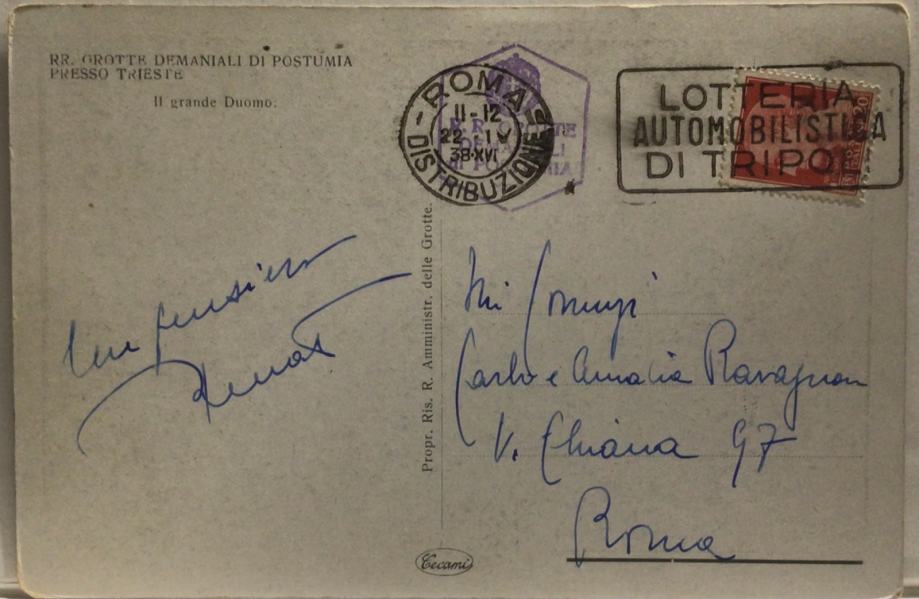 RR. GROTTE DEMANIALI DI POSTUMIA
PRESSO TRIESTE
Il grande Duomo.
ROMA
DISTRIBUZIONE
11-12
22-1
38·XVI
LOTTERIA
AUTOMOBILISTICA
DI TRIPOLI
Un pensiero
Renato
Propr. Ris. R. Amministr. delle Grotte.
Carlo e Amalia Ravagnan
V. Chiana 97
Roma
Cecami